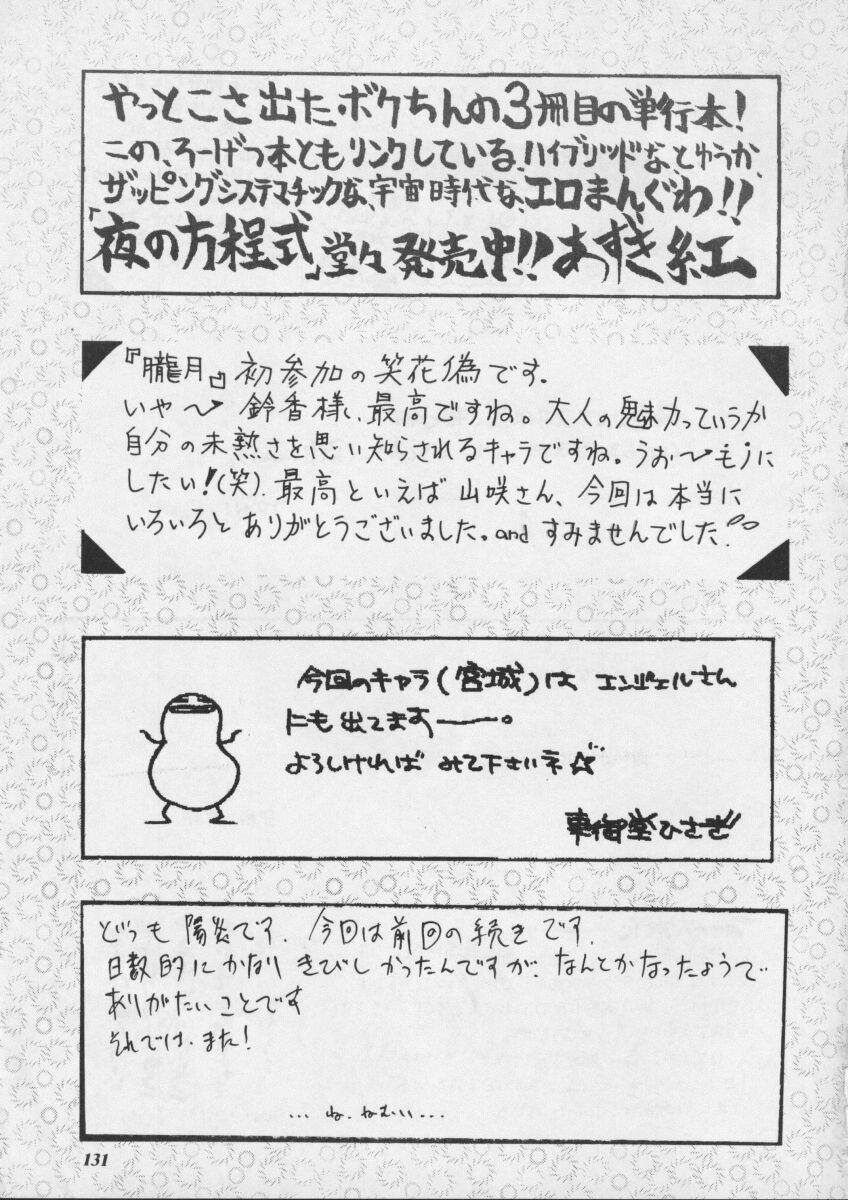 やっとこさ出たボクちんの3冊目の単行本！
この、ろーげつ本ともリンクしている、ハイブリッドな、とゆうか、
ザッピングシステマチックな、宇宙時代な、エロまんぐわ!!
「夜の方程式」堂々発売中!!あずき紅
『朧月』初参加の笑花偽です.
いや〜 鈴香様、最高ですね。大人の魅力っていうか
自分の未熟さを思い知らされるキャラですね。うお〜モノに
したい！(笑). 最高といえば山咲さん、今回は本当に
いろいろとありがとうございました。and すみませんでした
今回のキャラ(宮城)は エンジェルさん
にも出てますーー。
よろしければ みて下さいネ☆
東御堂ひさぎ
どうも 陽炎です. 今回は前回の続きです.
日数的にかなりきびしかったんですが、なんとかなったようで
ありがたいことです
それでは、また！
... ね、ねむいい...
131